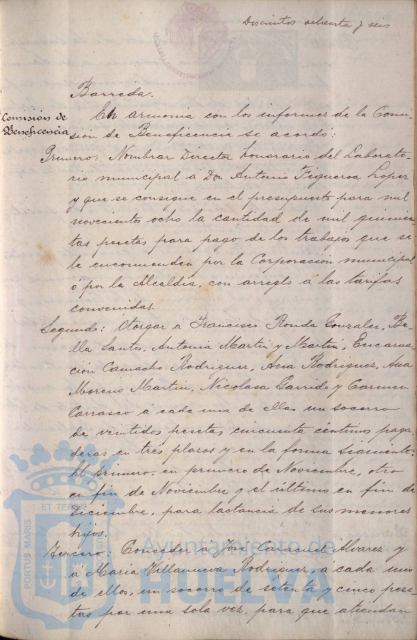 Doscientos ochenta y seis
Barreda.
Comisión de
Beneficencia
En armonia con los informes de la Comi-
sion de Beneficencia se acordó:
Primero: Nombrar Director honorario del Laborato-
rio municipal á Don Antonio Figueroa Lopez
y que se consigne en el presupuesto para mil
novecientos ocho la cantidad de mil quinien-
tas pesetas para pago de los trabajos que se
le encomienden por la Corporacion municipal
ó por la Alcaldia, con arreglo á las tarifas
convenidas.
Segundo: Otorgar a Francisca Ronda Gonzalez,
Santos, Antonia Martin y Martin, Encarna-
cion Camacho Rodriguez, Ana Rodriguez, Ana
Moreno Martin, Nicolasa Garrido y Carmen
Carrasco a cada una de ellas un socorro
de veintidos pesetas cincuenta centimos paga-
deras en tres plazos y en la forma siguiente:
el primero, en primero de Noviembre, otro
en fin de Noviembre y el último en fin de
Diciembre, para lactancia de sus menores
hijos.
Tercero: Conceder a José Alvarez y
á Maria Villanueva Rodriguez, a cada uno
de ellos, un socorro de setenta y cinco pese-
tas por una sola vez, para que atiendan
PORTUS MARIS ET TERRE
Ayuntamiento de
HUELVA